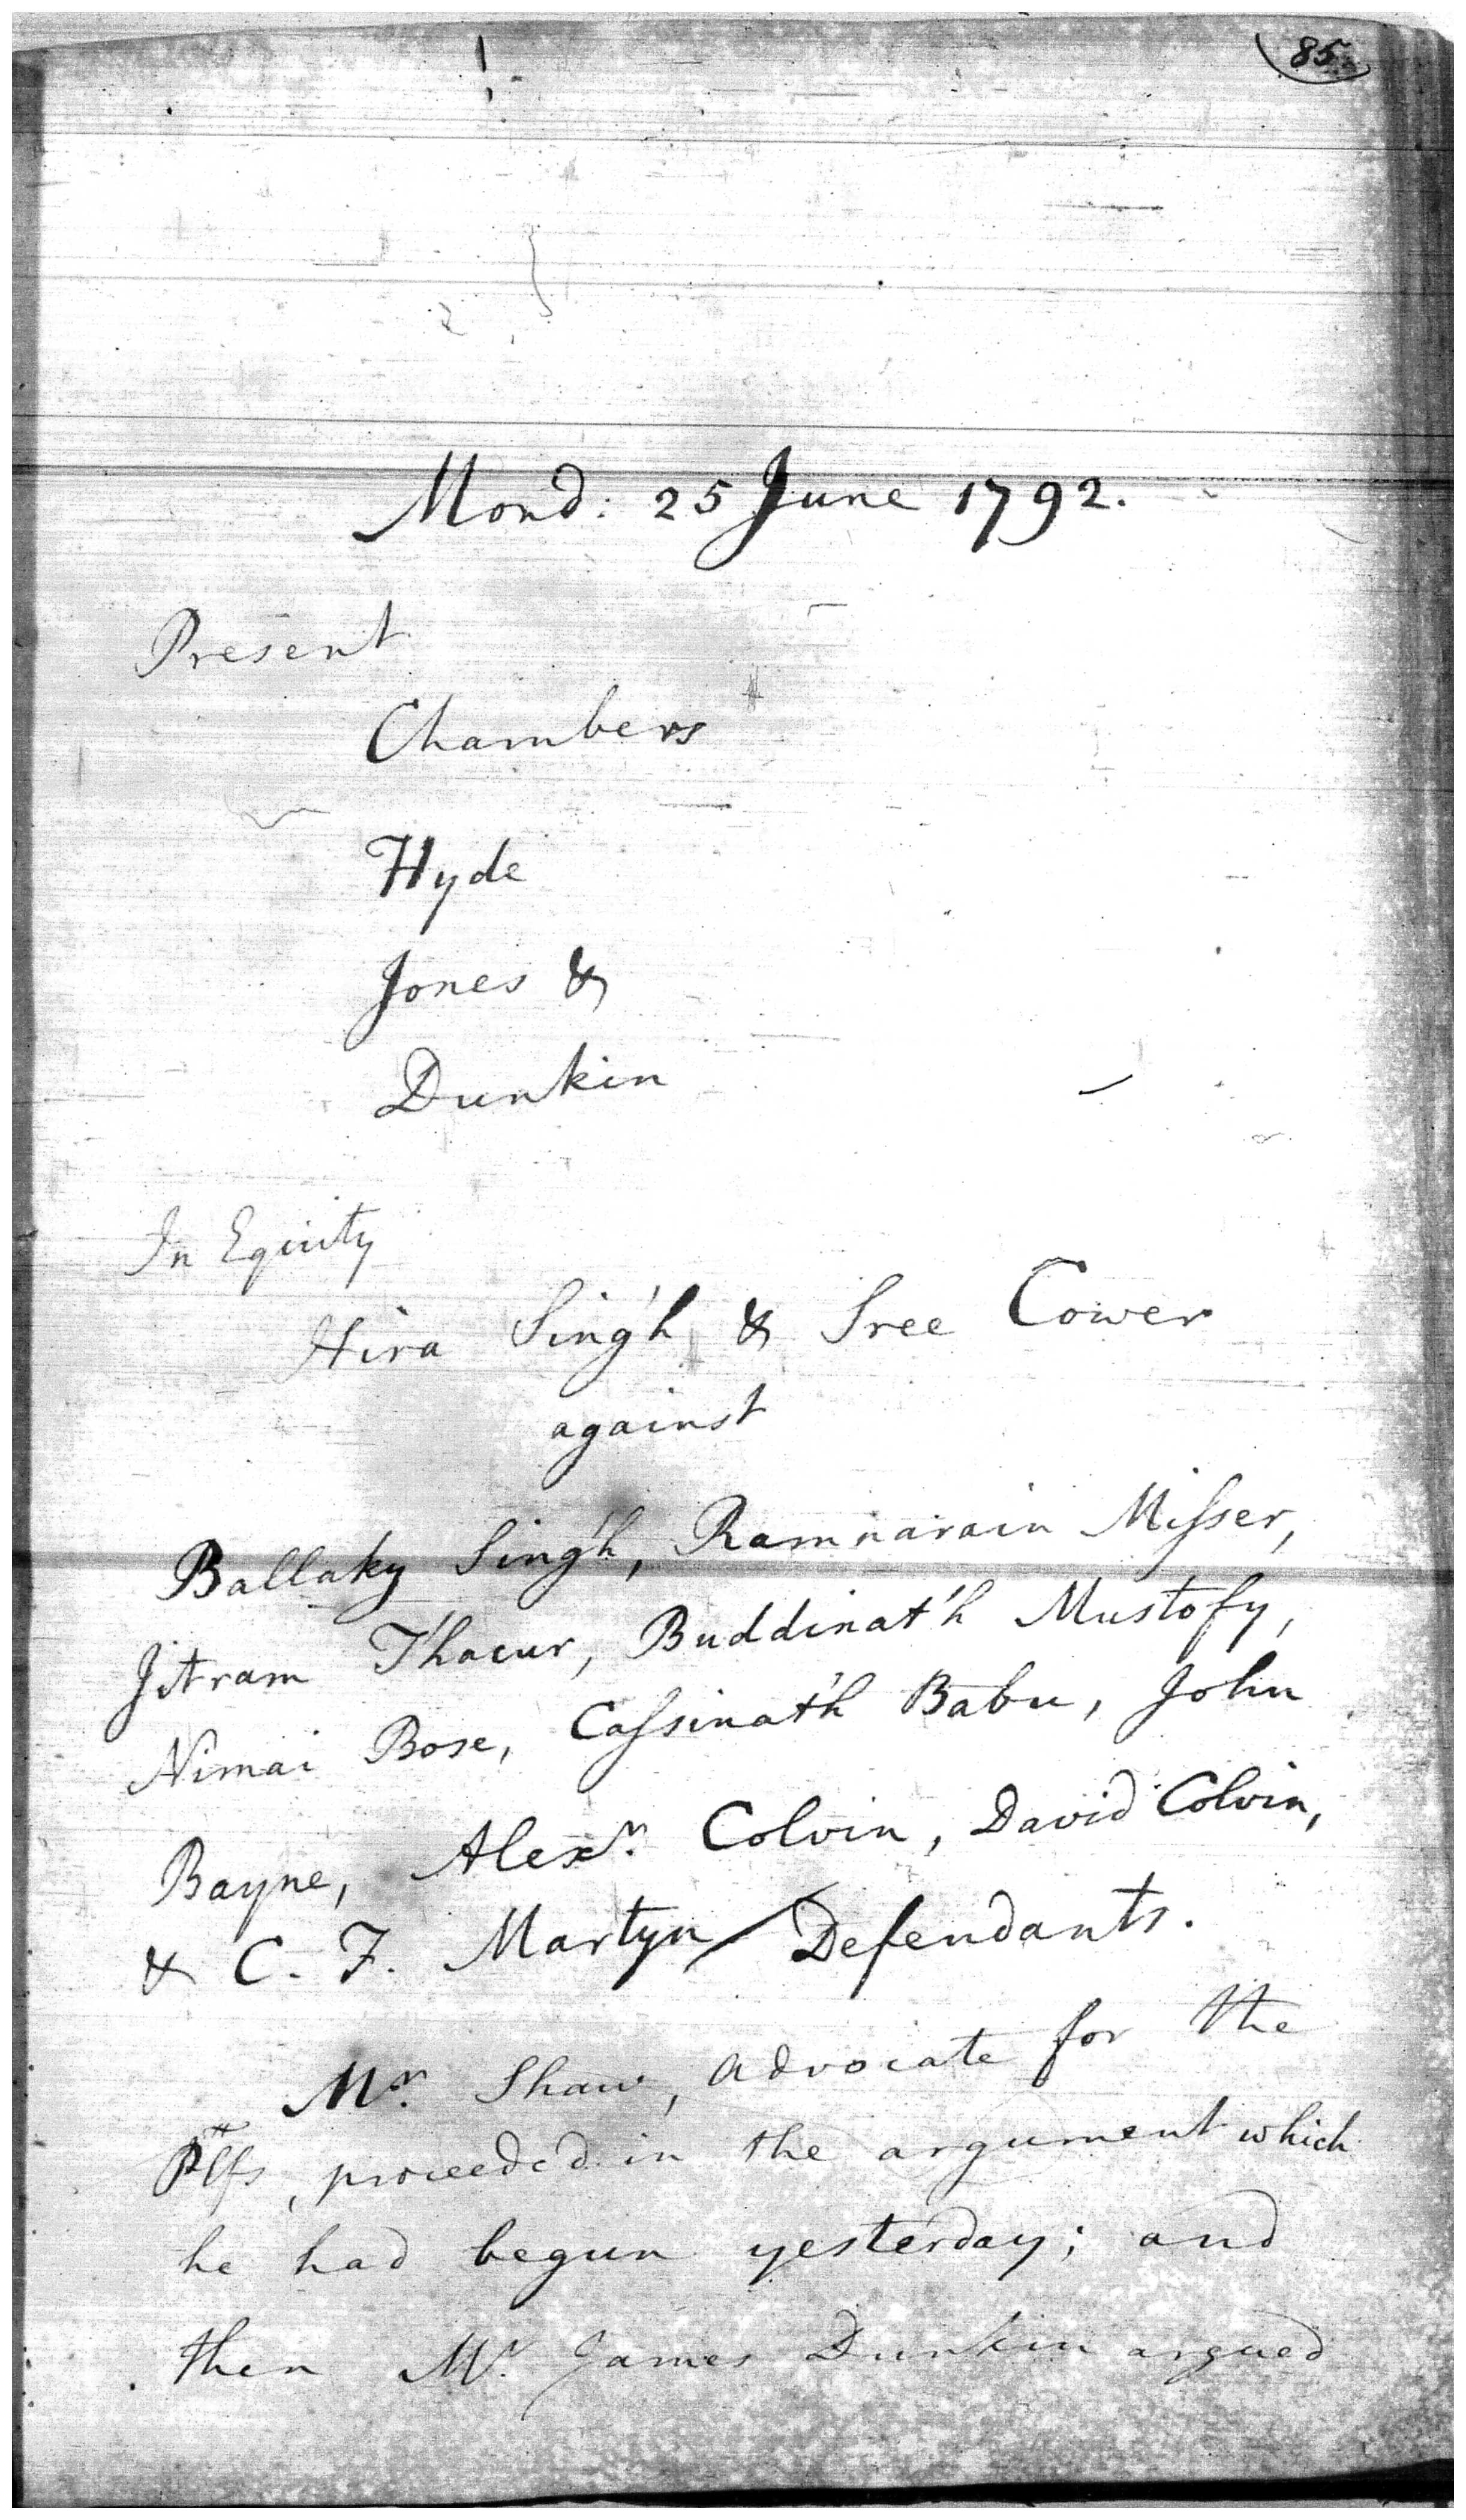 85
Mond: 25 June 1792.
Present
Chambers
Hyde
Jones &
Dunkin
In Equity
Hira Sing'h & Sree Cower
against
Ballaky Sing'h, Ramnarain Miſser,
Jitram T'hacur, Buddinat'h Mustofy,
Nimai Bose, Caſsinat'h Babu, John
Bayne, Alexr. Colvin, David Colvin,
& C. F. Martyn Defendants.
Mr. Shaw, advocate for the
Plfs, proceeded in the argument which
he had begun yesterday; and
then Mr. James Dunkin argued